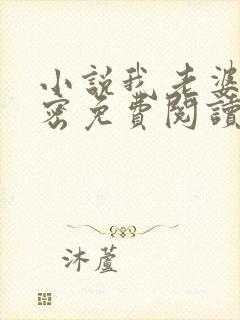 小說我老婆
密免費閱讀
沐蘆